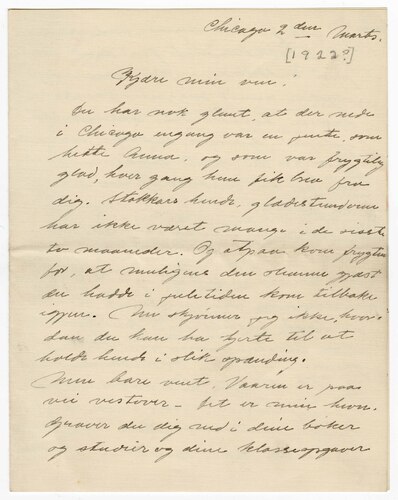 Chicago 2 den Marts.
[1922?]
Kjære min ven!
Du har nok glemt, at der nede
i Chicago engang var en jente, som
hette Anna, og som var frygtelig
glad, hver gang hun fik brev fra
dig. Stakkars hende, glædestunderne
har ikke været mange i de sisste
to maaneder. Og atpaa kom frygten
for, at muligens den slemme gjæst
du hadde i juletiden kom tilbake
igjen. Nu skjønner jeg ikke, hvor-
dan du kan ha hjerte til at
holde hende i slik spænding.
Men bare vent. Vaaren er paa
vei vestover - det er min hevn.
Graver du dig ned i dine bøker
og studier og dine klasseopgaver